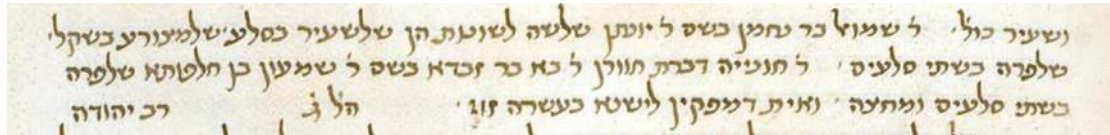 ושעיר כול'· ר' שמואל בר נחמן בשם ר' יונתן שלשה לשונות הן שלשעיר בסלע· שלמצורע בשקל·
שלפרה בשתי סלעים · ר' חונייה דברת חוורן ר' בא בר זבדא בשם ר' שמעון בן חלפותא שלפרה
בשתי סלעים ומחצה · ואית דמפקין לישנא בעשרה זוז · הל' ג' רב יהודה